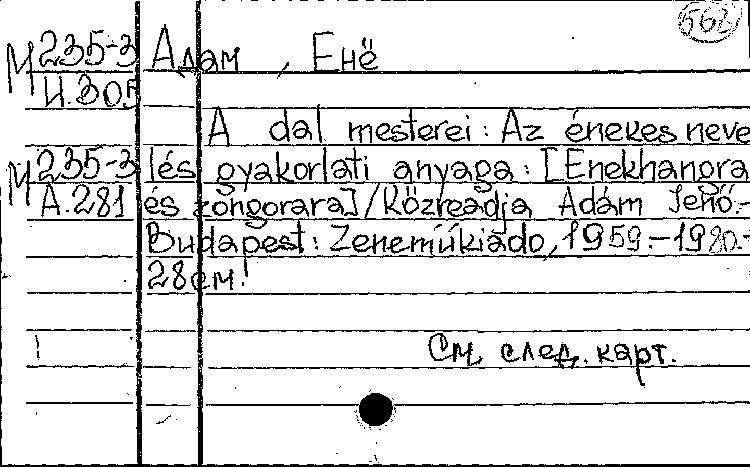 562
М 235-3 Адам, Енё
И.305
A dal mesterei: Az énekes neve
М 235-3 lés gyakorlati anyaga: [Enekhangra
А.281 és zongorara]/Közreadja Adám Jenő.-
Budapest: Zeneműkiado, 1959.-1980.-
28см.
См. след. карт.